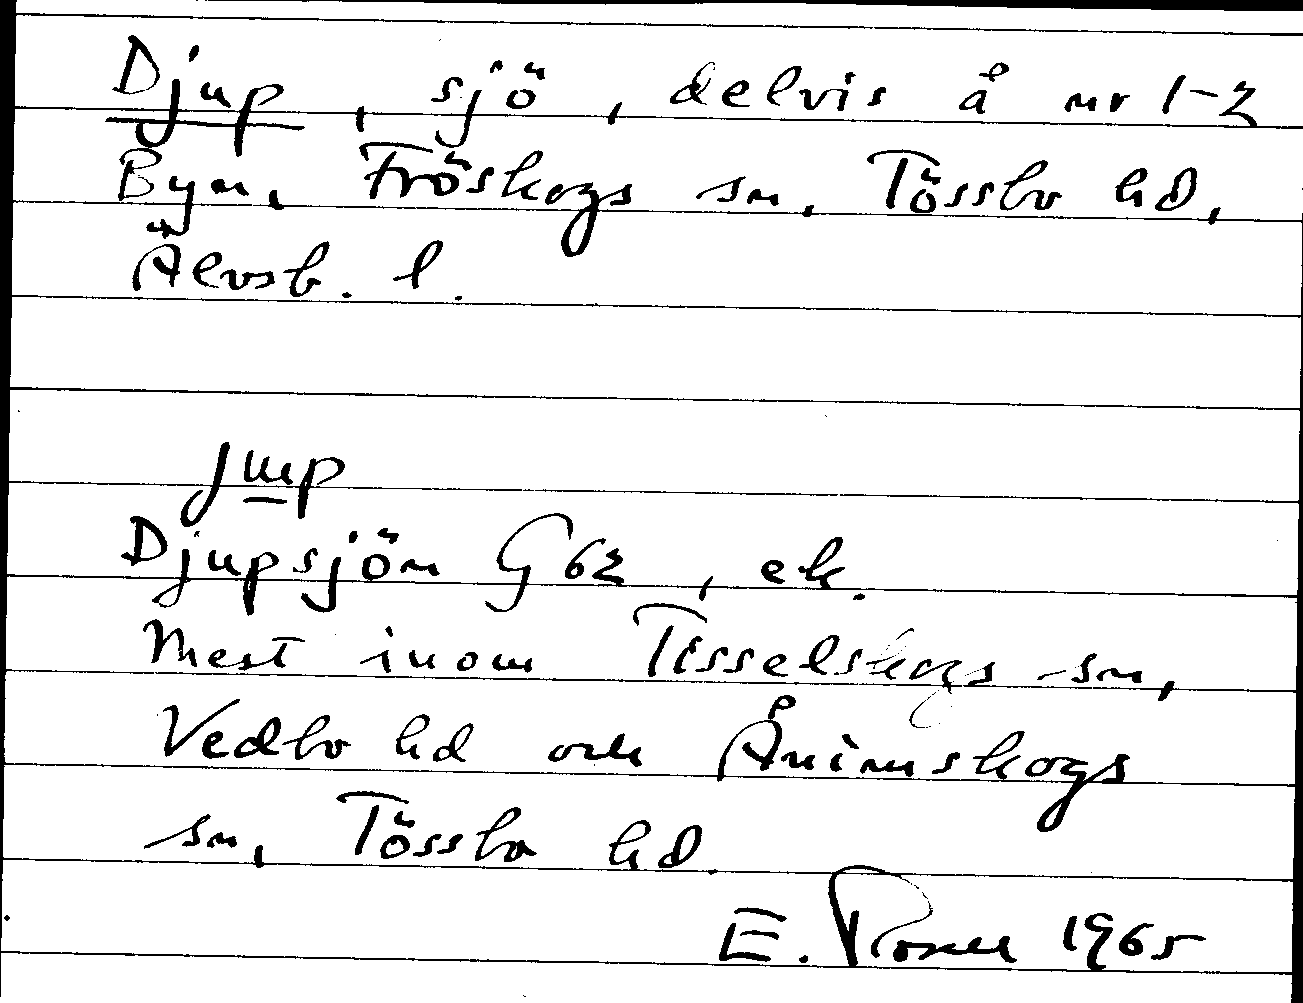 Djup, sjö, delvis å nr 1-2
Byn, Fröskogs sn, Tössbo hd,
Älvsb. l.
jup
Djupsjön G 62, ek.
Mest inom Tisselskogs sn,
Vedbo hd och Ånimskogs
sn, Tössbo hd.
E. Rosell 1965